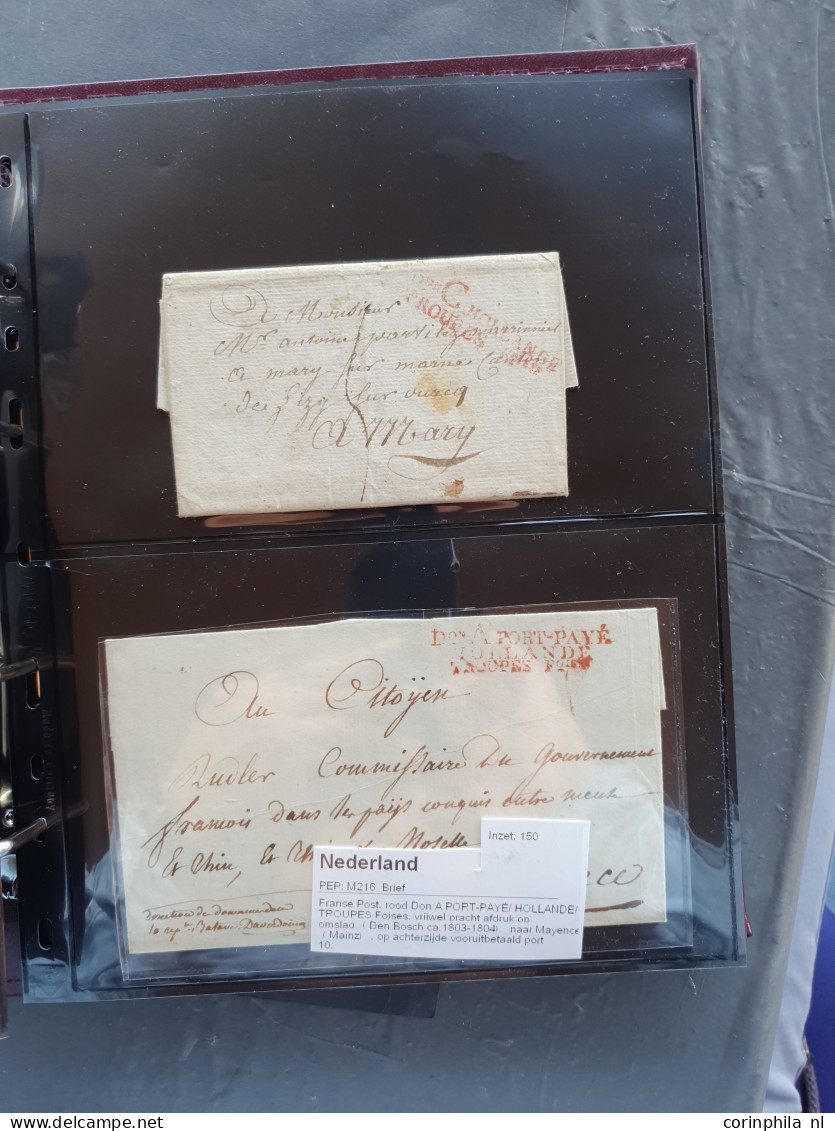 Don C HOLLANDE
TROUPES
A Monsieur
Mr antoine
a mary sur marne Canton
de sur ourcq
A Mary
Don A PORT-PAYÉ
HOLLANDE
TROUPES Fses
Au Citoÿen
Rudler Commissaire Du Gouvernement
francois dans les païs conquis entre meuse
Et Rhin, Et Rhin & Moselle
Direction des domaines dans
la rep. Batave
Inzet: 150
Nederland
PEP: M216 Brief
Franse Post, rood Don A PORT-PAYÉ/ HOLLANDE/
TROUPES Foises, vrijwel pracht afdruk op
omslag, ( Den Bosch ca.1803-1804) naar Mayence
( Mainz) , op achterzijde vooruitbetaald port
10.
corinphila nl